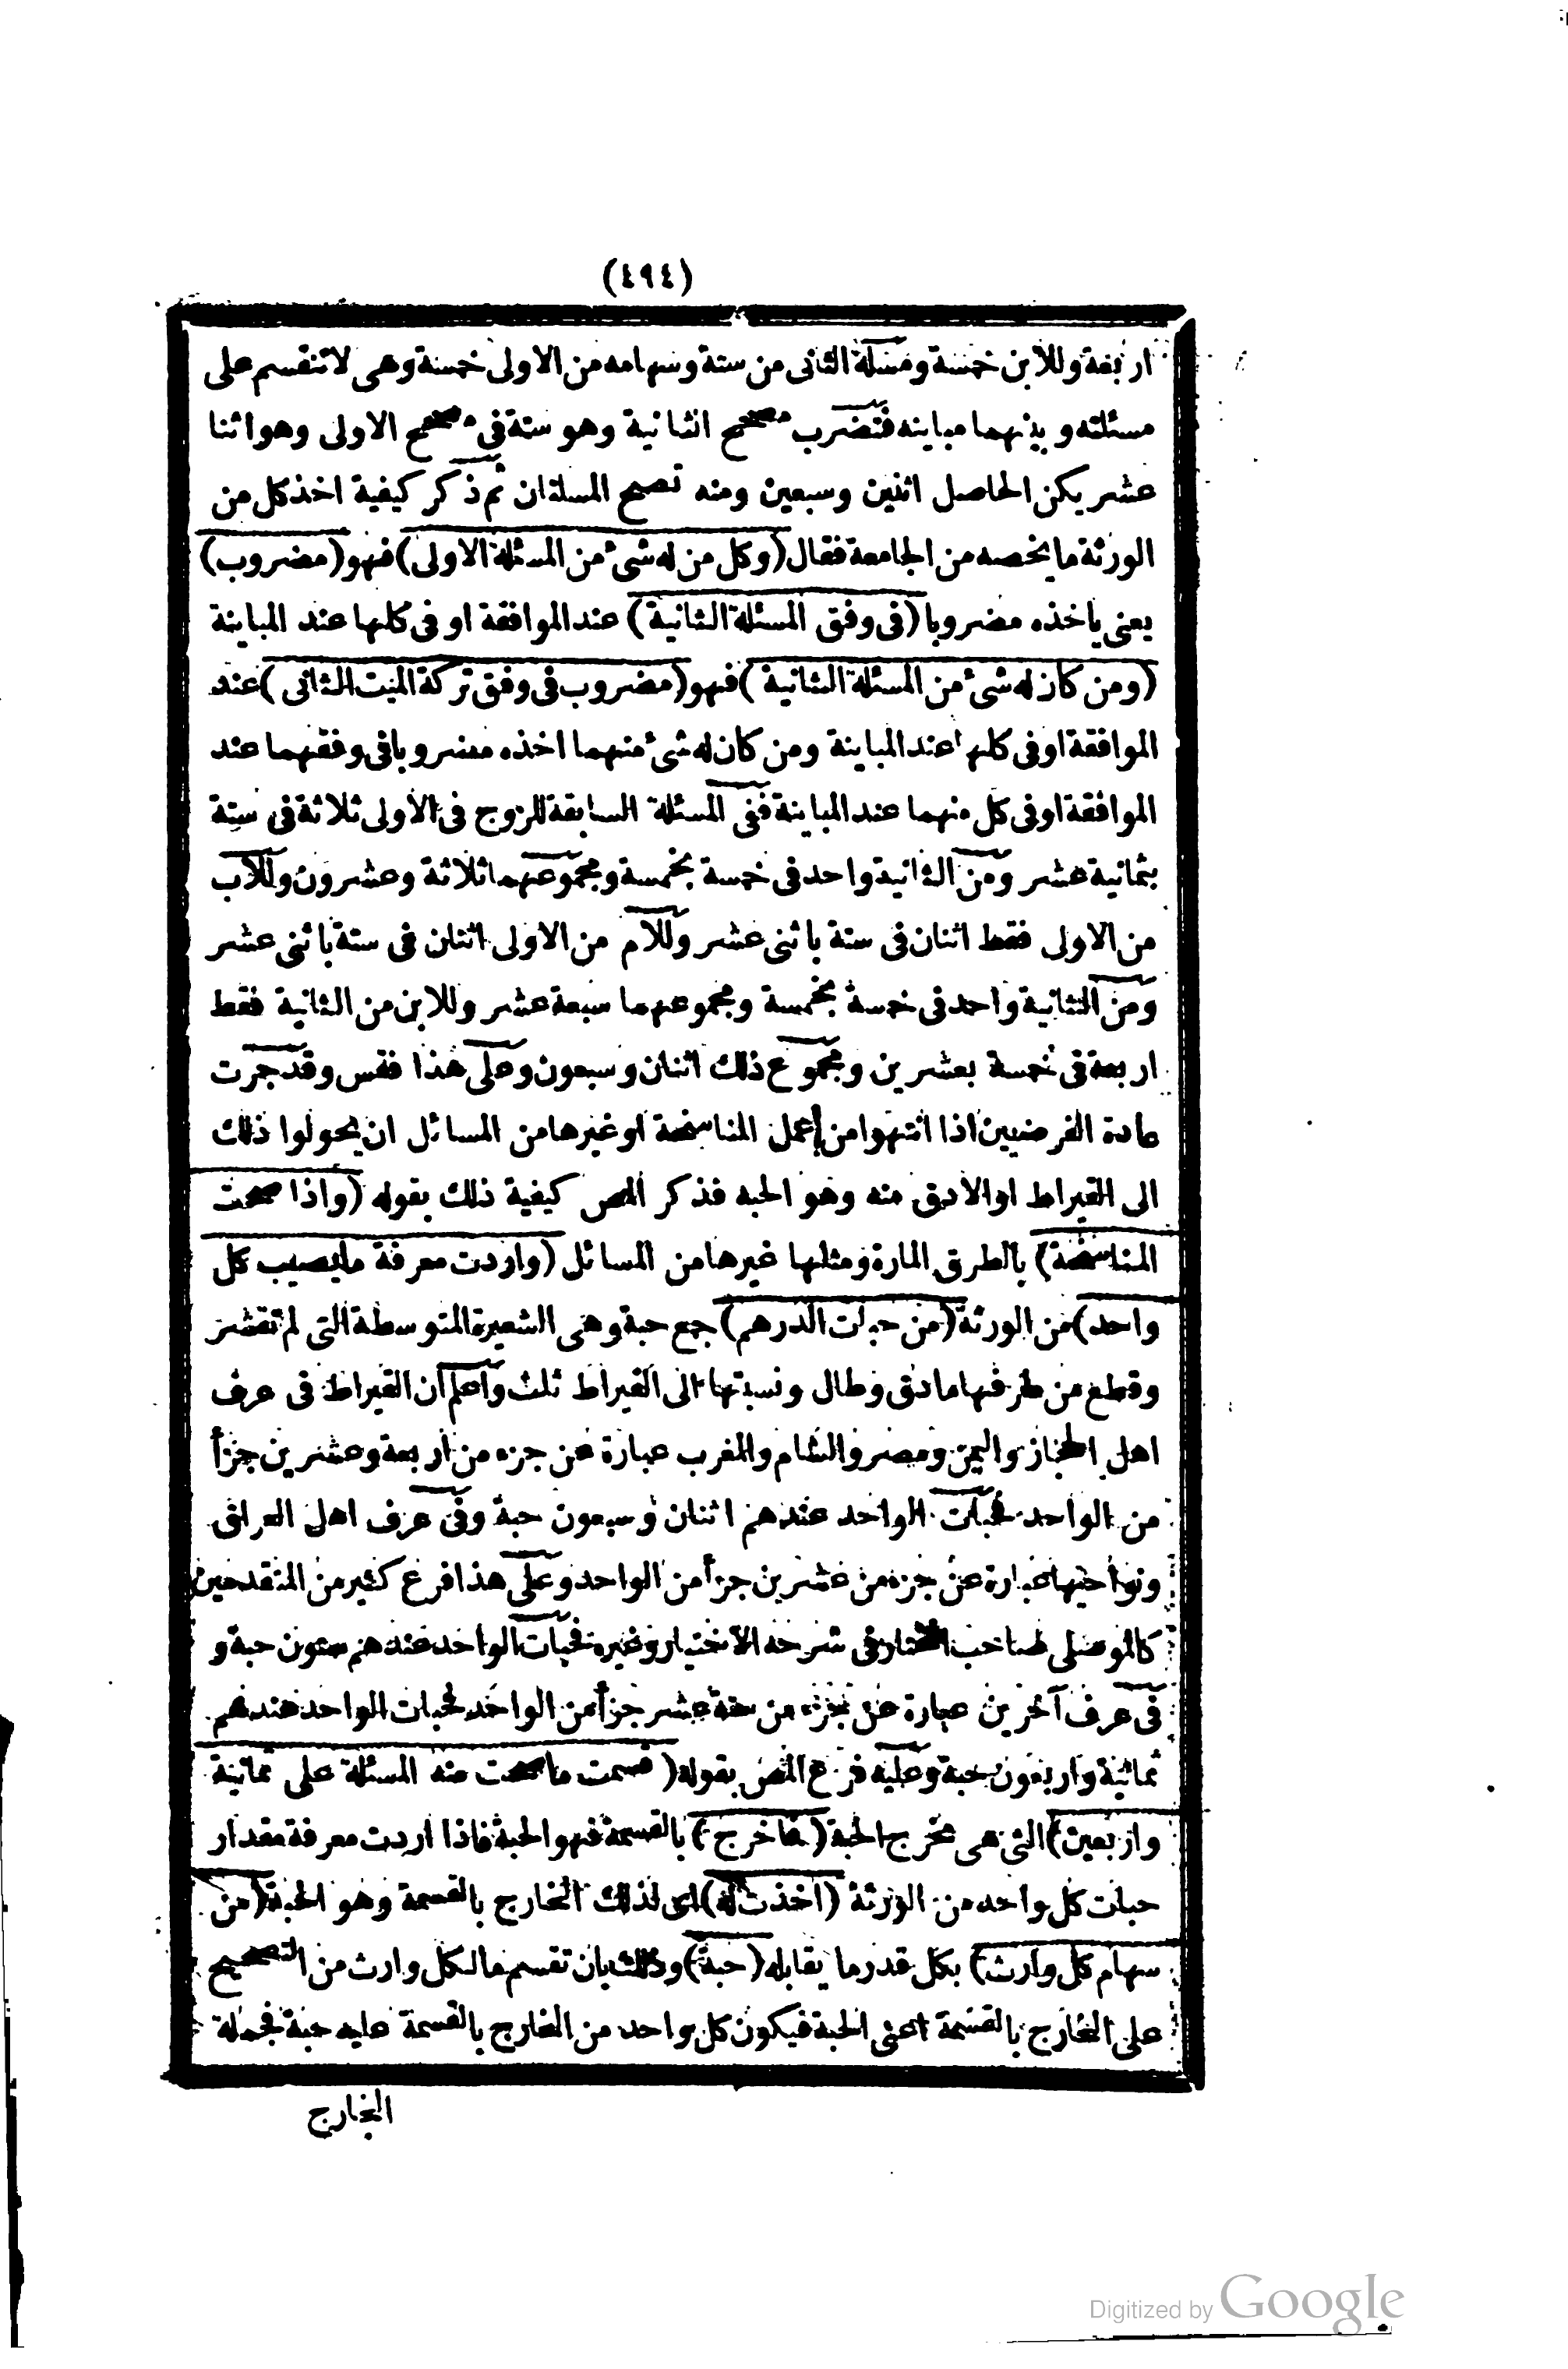 (٤٩٤)
اربعة وللابن خمسة ومسئلة الثانى من ستة وسهامه من الاولى خمسة وهى لا تنقسم على
مسئلته وبينهما مباينه فتضرب مصحح الثانية وهو ستة فى مصحح الاولى وهو اثنا
عشر يكن الحاصل اثنين وسبعين ومنه تصح المسئلتان ثم ذكر كيفية اخذ كل من
الورثة ما يخصه من الجامعة فقال (وكل من له شئ من المسئلة الاولى) فهو (مضروب)
يعنى ياخذه مضروبا (فى وفق المسئلة الثانية) عند الموافقة او فى كلها عند المباينة
(ومن كان له شئ من المسئلة الثانية) فهو (مضروب فى وفق تركة الميت الثانى) عند
الموافقة او فى كلها عند المباينة ومن كان له شئ منهما اخذه مضروبا فى وفقهما عند
الموافقة او فى كل منهما عند المباينة ففى المسئلة السابقة للزوج فى الاولى ثلاثة فى ستة
بثمانية عشر ومن الثانية واحد فى خمسة بخمسة ومجموعهما ثلاثة وعشرون وللاب
من الاولى فقط اثنان فى ستة باثنى عشر وللام من الاولى اثنان فى ستة باثنى عشر
ومن الثانية واحد فى خمسة بخمسة ومجموعهما سبعة عشر وللابن من الثانية فقط
اربعة فى خمسة بعشرين ومجموع ذلك اثنان وسبعون وعلى هذا فقس وقد جرت
عادة الفرضيين اذا انتهوا من عمل المناسخة او غيرها من المسائل ان يحولوا ذلك
الى القيراط او الادق منه وهو الحبه فذكر المص كيفية ذلك بقوله (واذا صحت
المناسخة) بالطرق المارة ومثلها غيرها من المسائل (واردت معرفة ما يصيب كل
واحد) من الورثة (من حبات الدرهم) جمع حبة وهى الشعيرة المتوسطة التى لم تقشر
وقطع من طرفها ما دق وطال ونسبتها الى القيراط ثلث واعلم ان القيراط فى عرف
اهل الحجاز واليمن ومصر والشام والمغرب عبارة عن جزء من اربعة وعشرين جزأ
من الواحد فحبات الواحد عندهم اثنان وسبعون حبة وفى عرف اهل العراق
ونواحيها عبارة عن جزء من عشرين جزأ من الواحد وعلى هذا فرع كثير من المتقدمين
كالموصلى صاحب المختار فى شرحه الاختيار وغيره فحبات الواحد عندهم ستون حبة و
فى عرف آخرين عبارة عن جزء من ستة عشر جزأ من الواحد فحبات الواحد عندهم
ثمانية واربعون حبة وعليه فرع المص بقوله (قسمت ما صحت منه المسئلة على ثمانية
واربعين) التى هى مخرج الحبة (فما خرج) بالقسمة فهو الحبة فاذا اردت معرفة مقدار
حبات كل واحد من الورثة (اخذت له) اى لذلك الخارج بالقسمة وهو الحبة (من
سهام كل وارث) بكل قدر ما يقابله (حبة) وذلك بان تقسم ما لكل وارث من التصحيح
على الخارج بالقسمة اعنى الحبة فيكون كل واحد من الخارج بالقسمة عليه حبة فجملة
الخارج
Digitized by Google